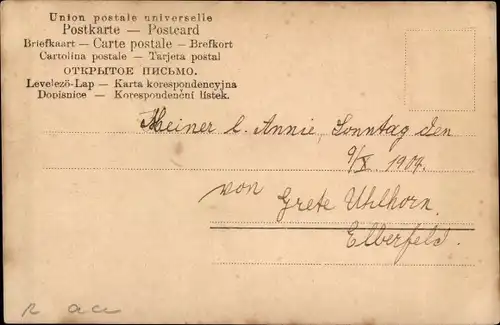 Union postale universelle
Postkarte — Postcard
Briefkaart — Carte postale — Brefkort
Cartolina postale — Tarjeta postal
ОТКРЫТОЕ ПИСЬМО.
Levelező-Lap — Karta korespondencyjna
Dopisnice — Korespondenční lístek.
Meiner l. Annie, Sonntag den
9/X 1904.
von Grete Uhlhorn.
Elberfeld.